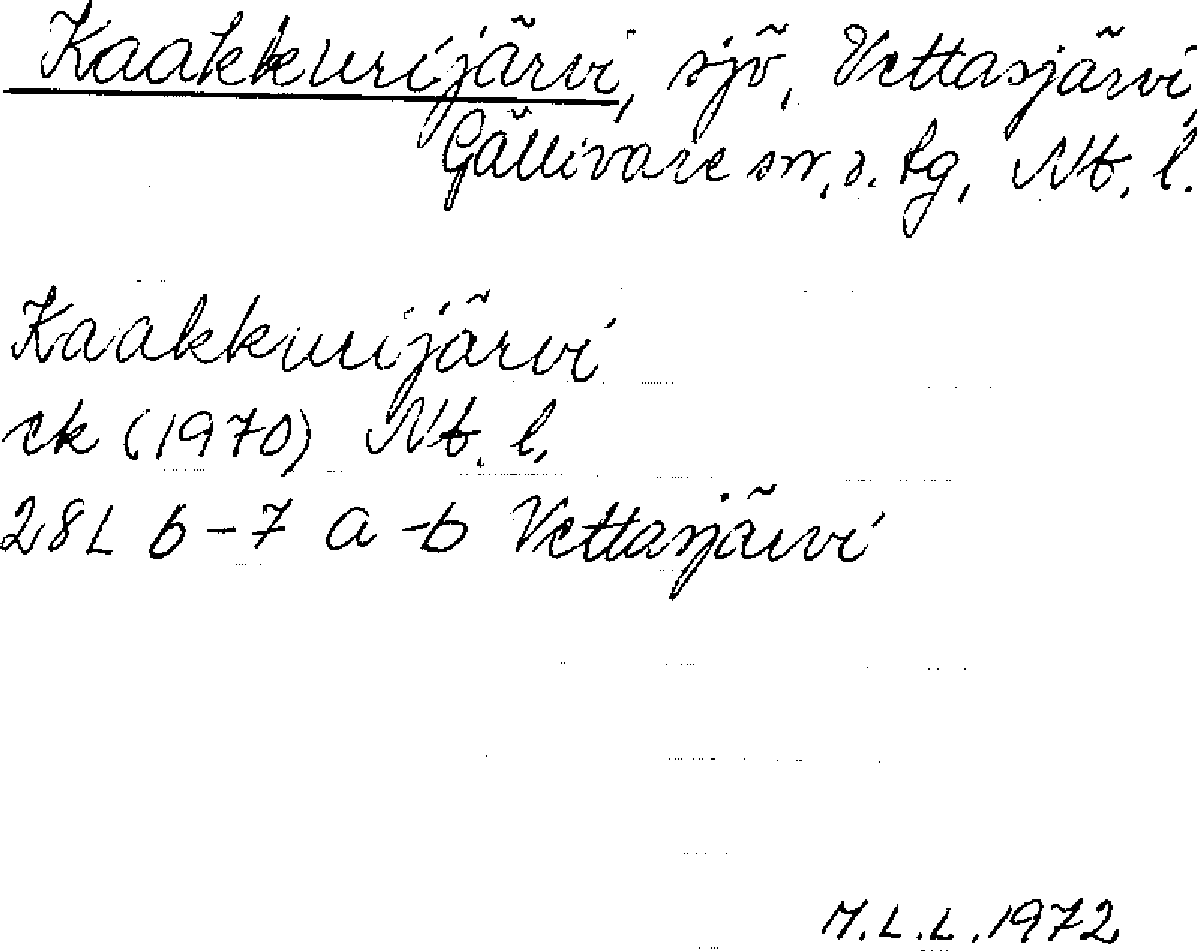 Kaakkurijärvi, sjö, Vettasjärvi,
Gällivare sn, s. tg, Nb. l.
Kaakkurijärvi
ek (1970) Nb. l.
28L 6-7 a-b Vettasjärvi
M.L.L. 1972